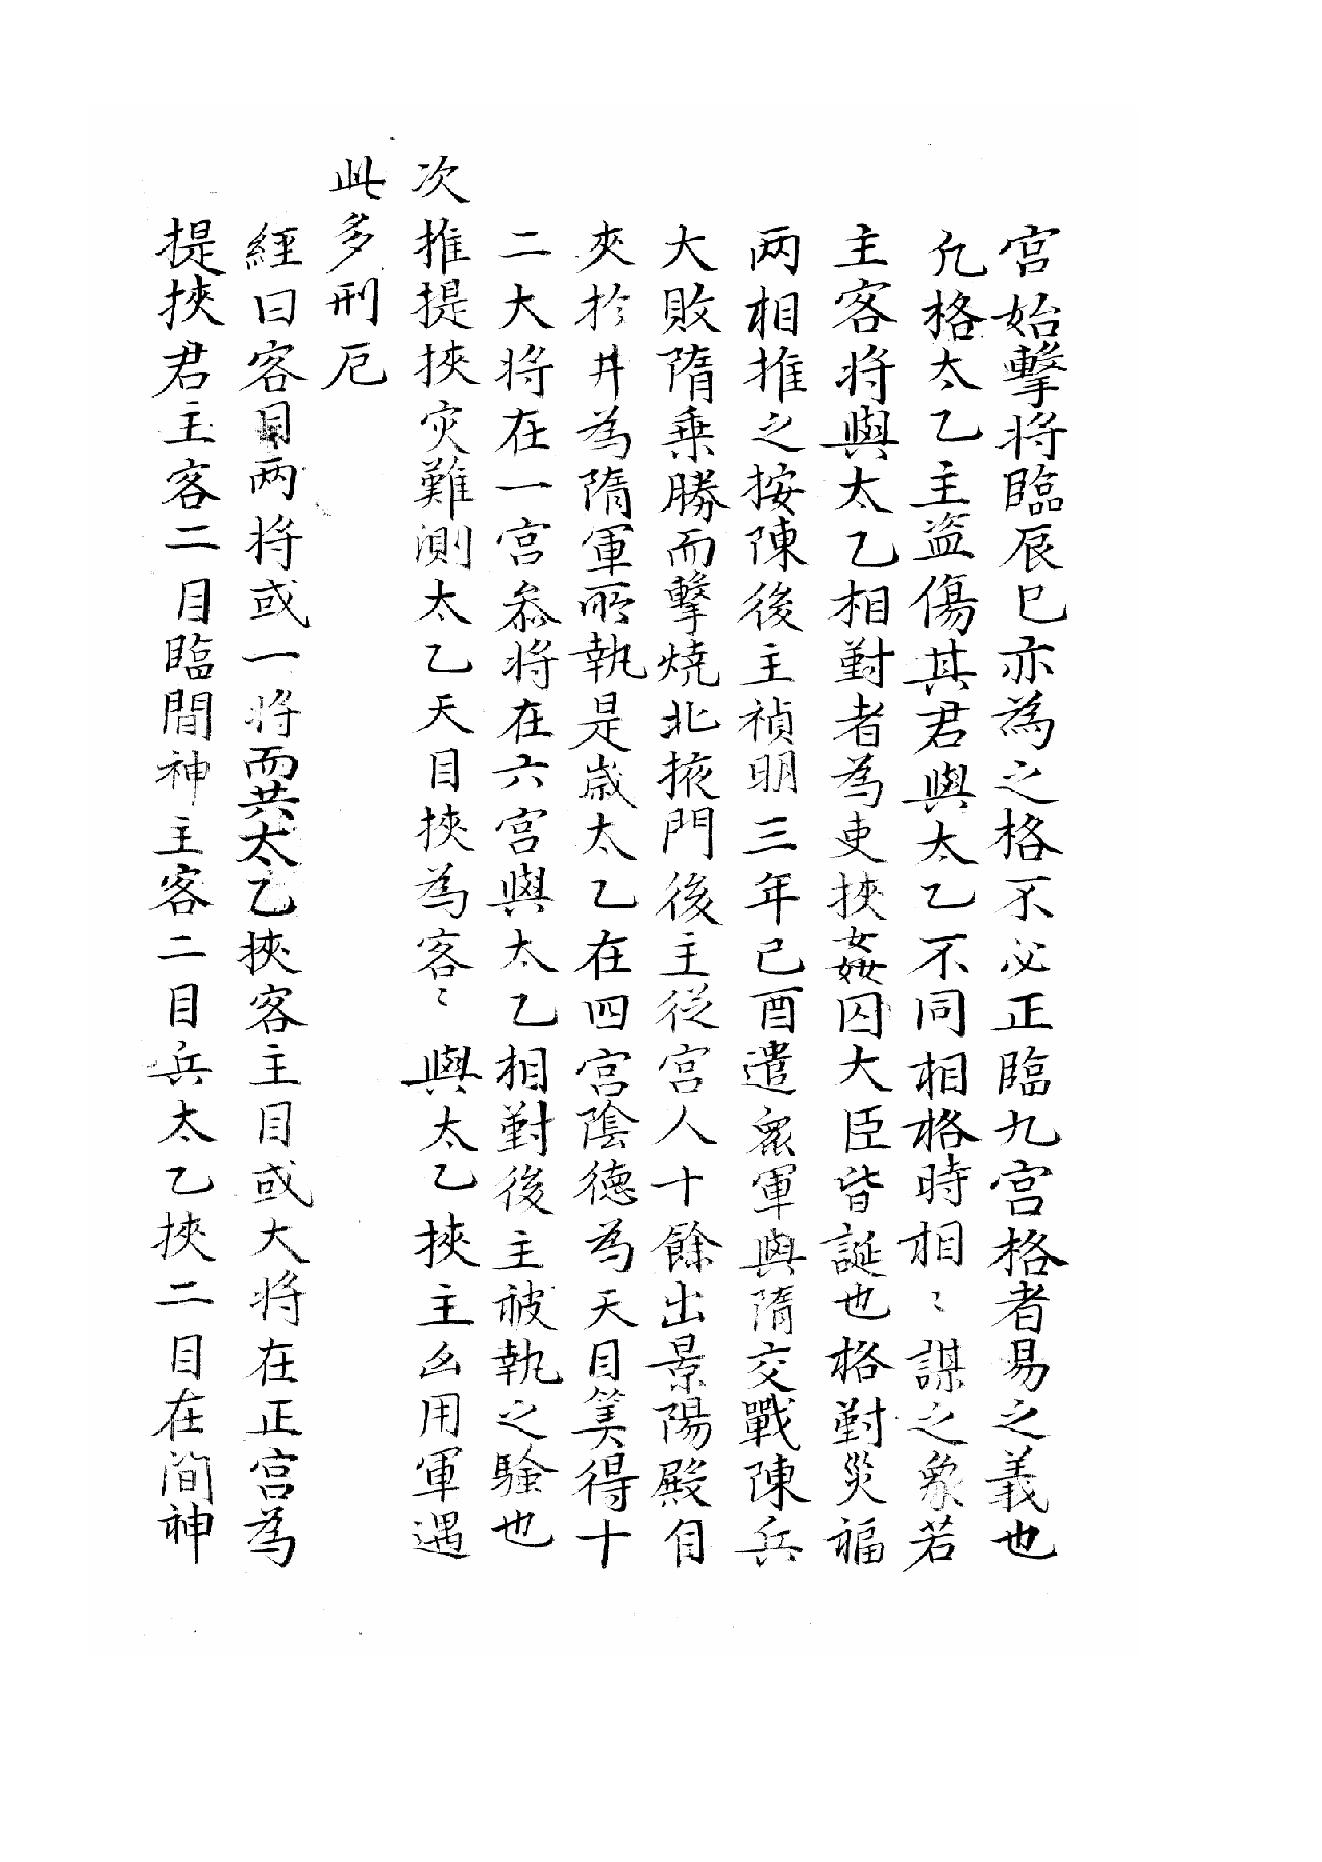 宫始擊将臨辰巳亦為之格不必正臨九宫格者易之義也
凢格太乙主盗傷其君與太乙不同相格時相〻謀之象若
主客将與太乙相對者為吏挾姦囚大臣皆誕也格對災福
两相推之按陳後主禎明三年已酉遣衆軍與隋交戰陳兵
大敗隋乗勝而擊燒北掖門後主従宫人十餘出景陽殿自
夾扵井為隋軍所執是歳太乙在四宫陰德為天目筭得十
二大将在一宫叅将在六宫與太乙相對後主被執之騷也
次推提挾灾難測太乙天目挾為客〻與太乙挾主么用軍遇
此多刑厄
經曰客目两将或一将而共太乙挾客主目或大将在正宫為
提挾君主客二目臨間神主客二目兵太乙挾二目在间神